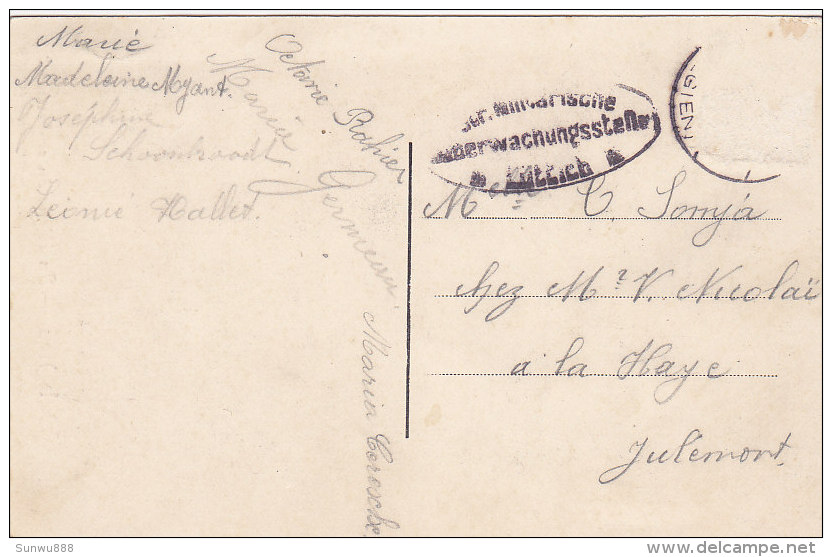 Marie
Madeleine Myant.
Joséphine
Schoonbroodt
Léonie Hallet.
Octavie Rohier
Maria Germeau
Maria
Str. Militärische
Überwachungsstelle
Lüttich
GIEN
Melle C Sonja
chez Mr V. Nicolaï
a la Haye
Julémont
Sunwu888
delcampe.net